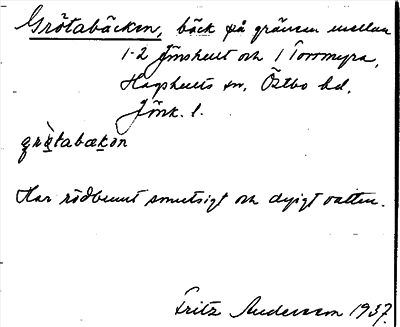 Grötabäcken, bäck på gränsen mellan
1-2 Jönshult och 1 Torrmyra,
Hagshults sn, Östbo hd,
Jönk. l.
grøtabækən
Har rödbrunt smutsigt och dyigt vatten.
Fritz Andersson 1937.